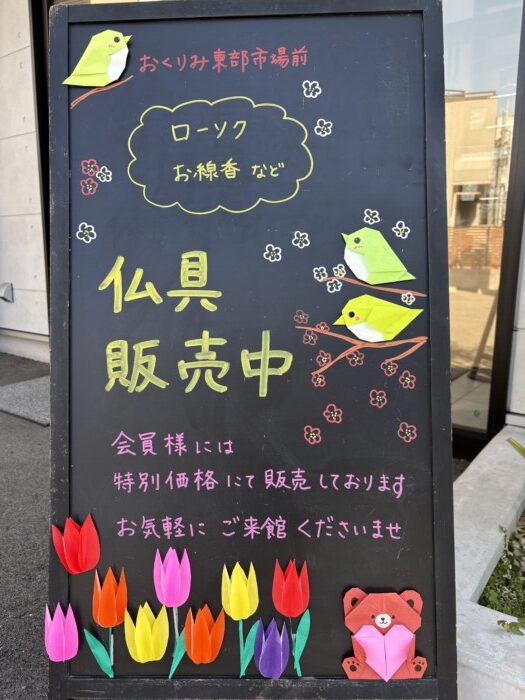 おくりみ東部市場前
ローソク
お線香 など
仏具
販売中
会員様には
特別価格にて販売しております
お気軽に ご来館くださいませ